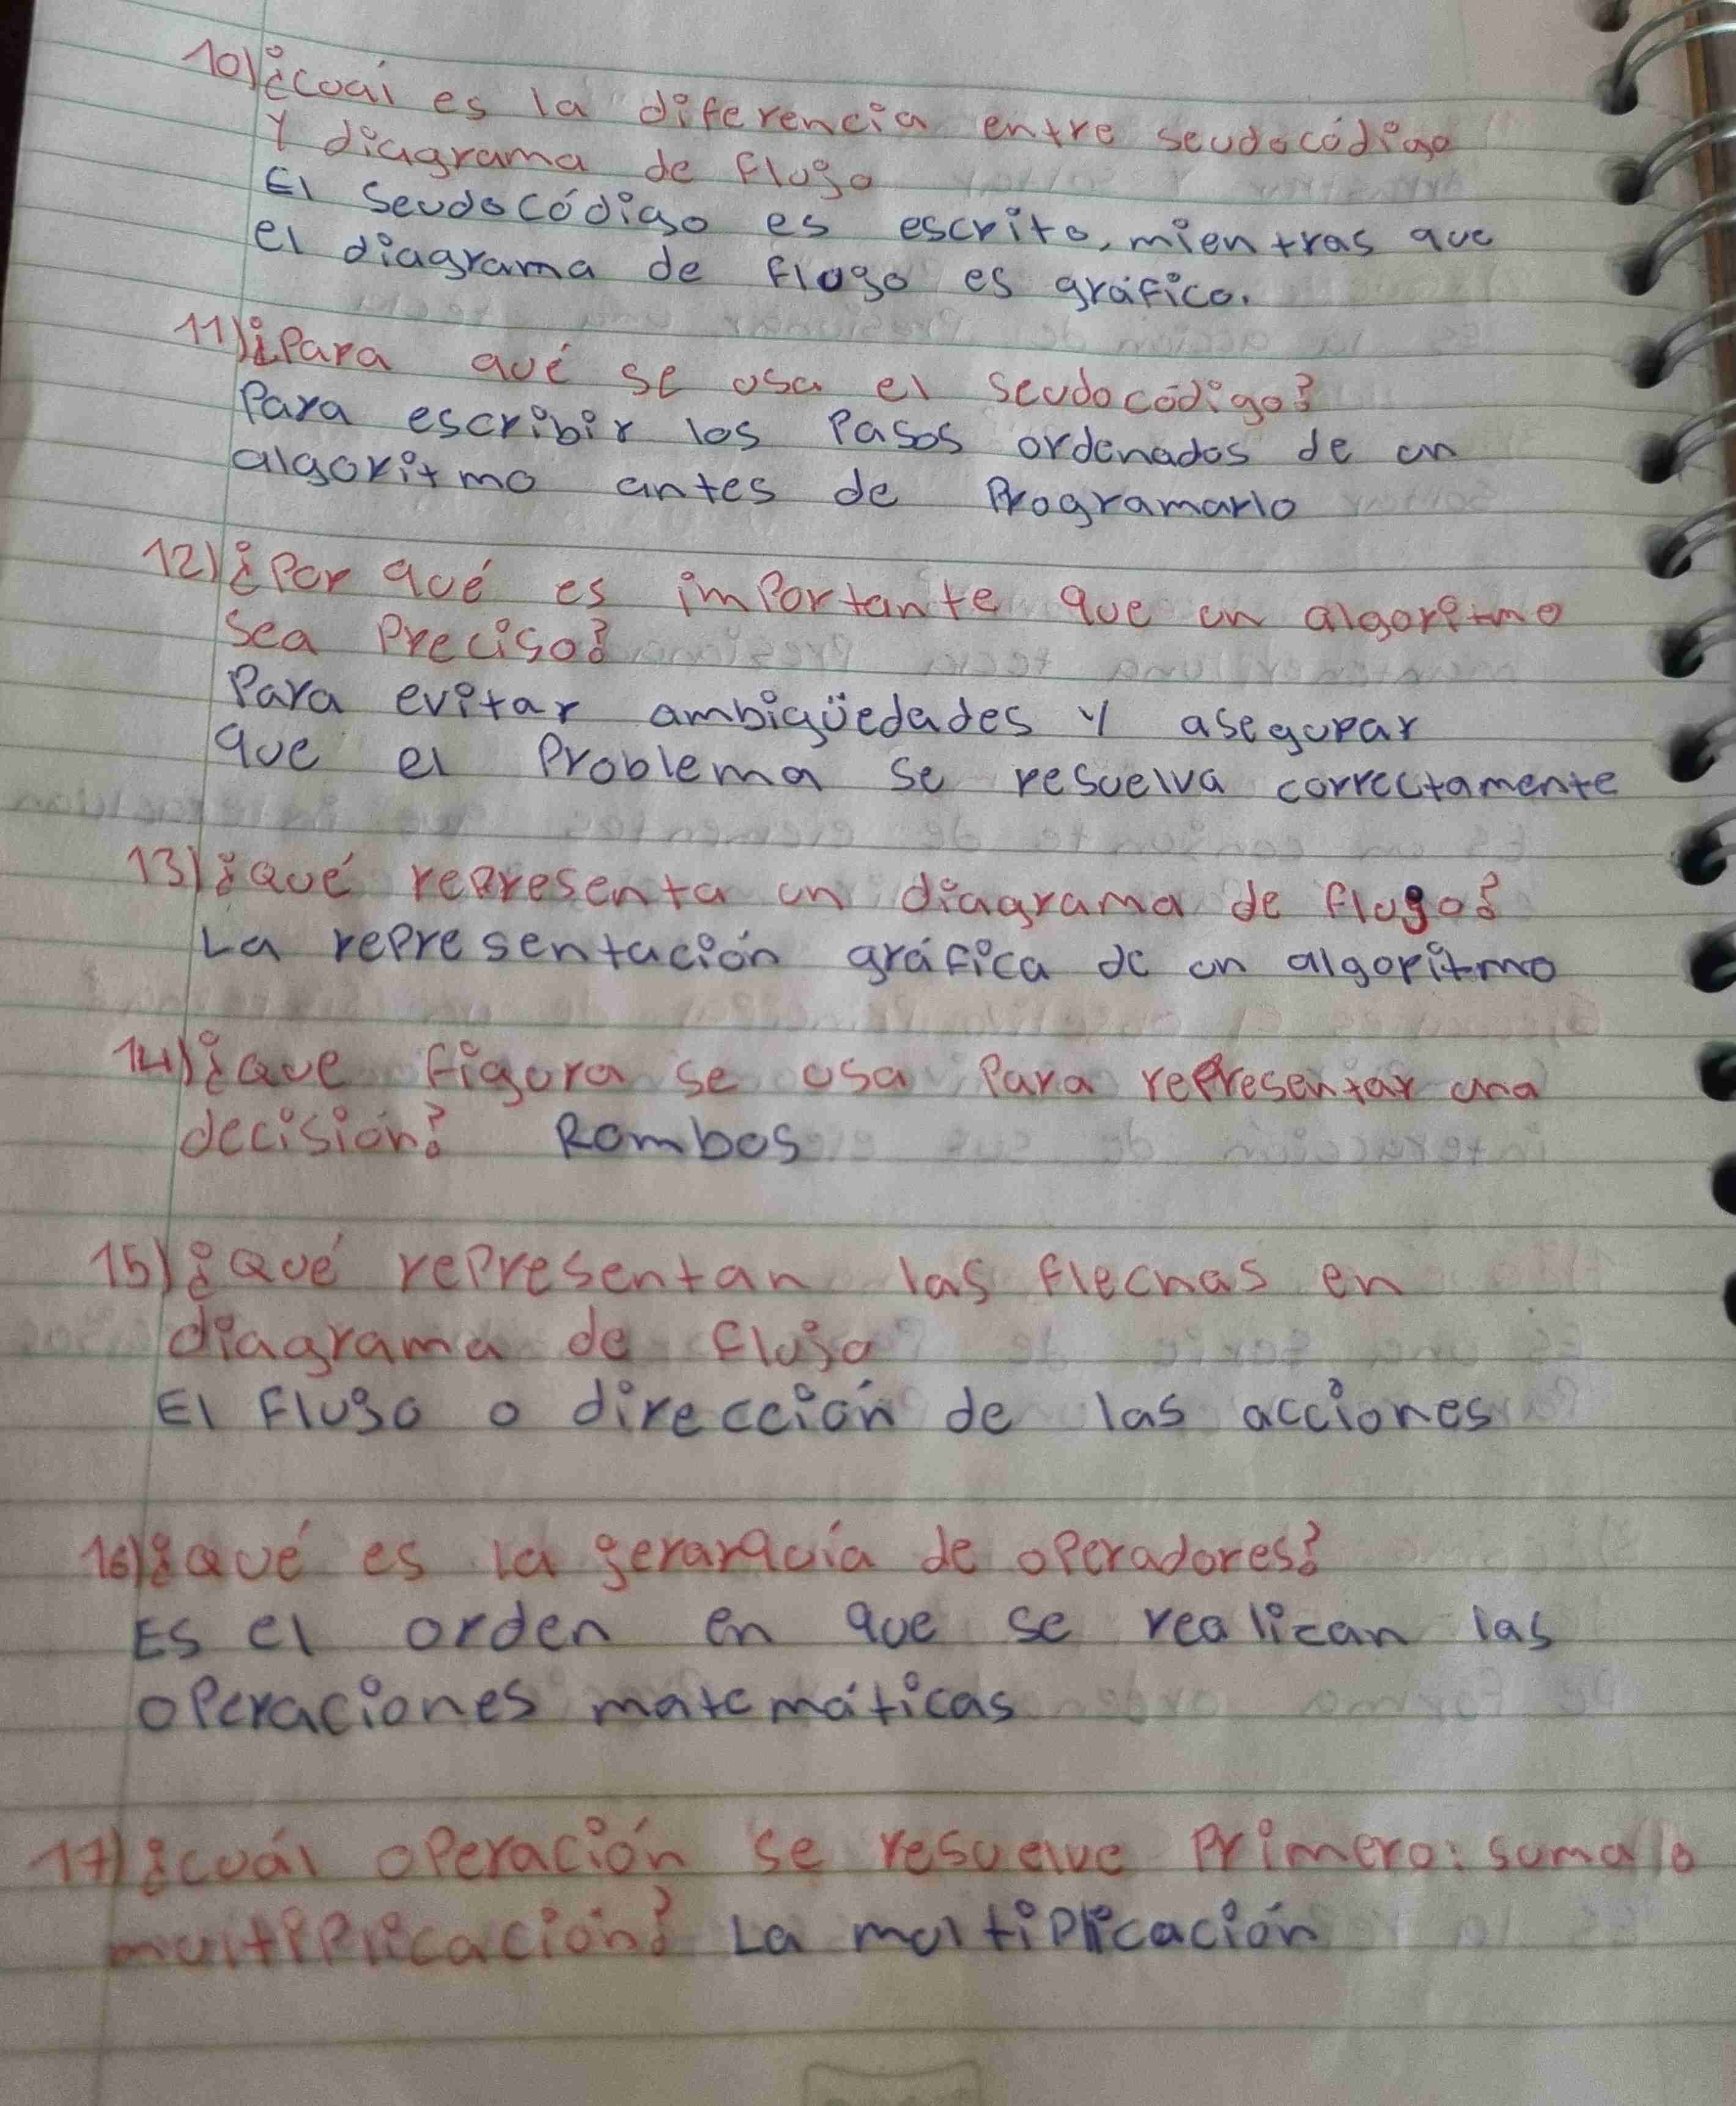 10) ¿Cuál es la diferencia entre seudocódigo
Y diagrama de flujo
El seudocódigo es escrito, mientras que
el diagrama de flujo es gráfico.
11) ¿Para qué se usa el seudocódigo?
Para escribir los Pasos ordenados de un
algoritmo antes de Programarlo
12) ¿Por qué es importante que un algoritmo
sea Preciso?
Para evitar ambigüedades y asegurar
que el Problema se resuelva correctamente
13) ¿Qué representa un diagrama de flujo?
La representación gráfica de un algoritmo
14) ¿Que figura se usa Para representar una
decisión? Rombos
15) ¿Qué representan las flechas en
diagrama de flujo
El Flujo o dirección de las acciones
16) ¿Qué es la jerarquía de operadores?
Es el orden en que se realizan las
operaciones matemáticas
17) ¿Cuál operación se resuelve Primero: suma o
multiplicación? La multiplicación